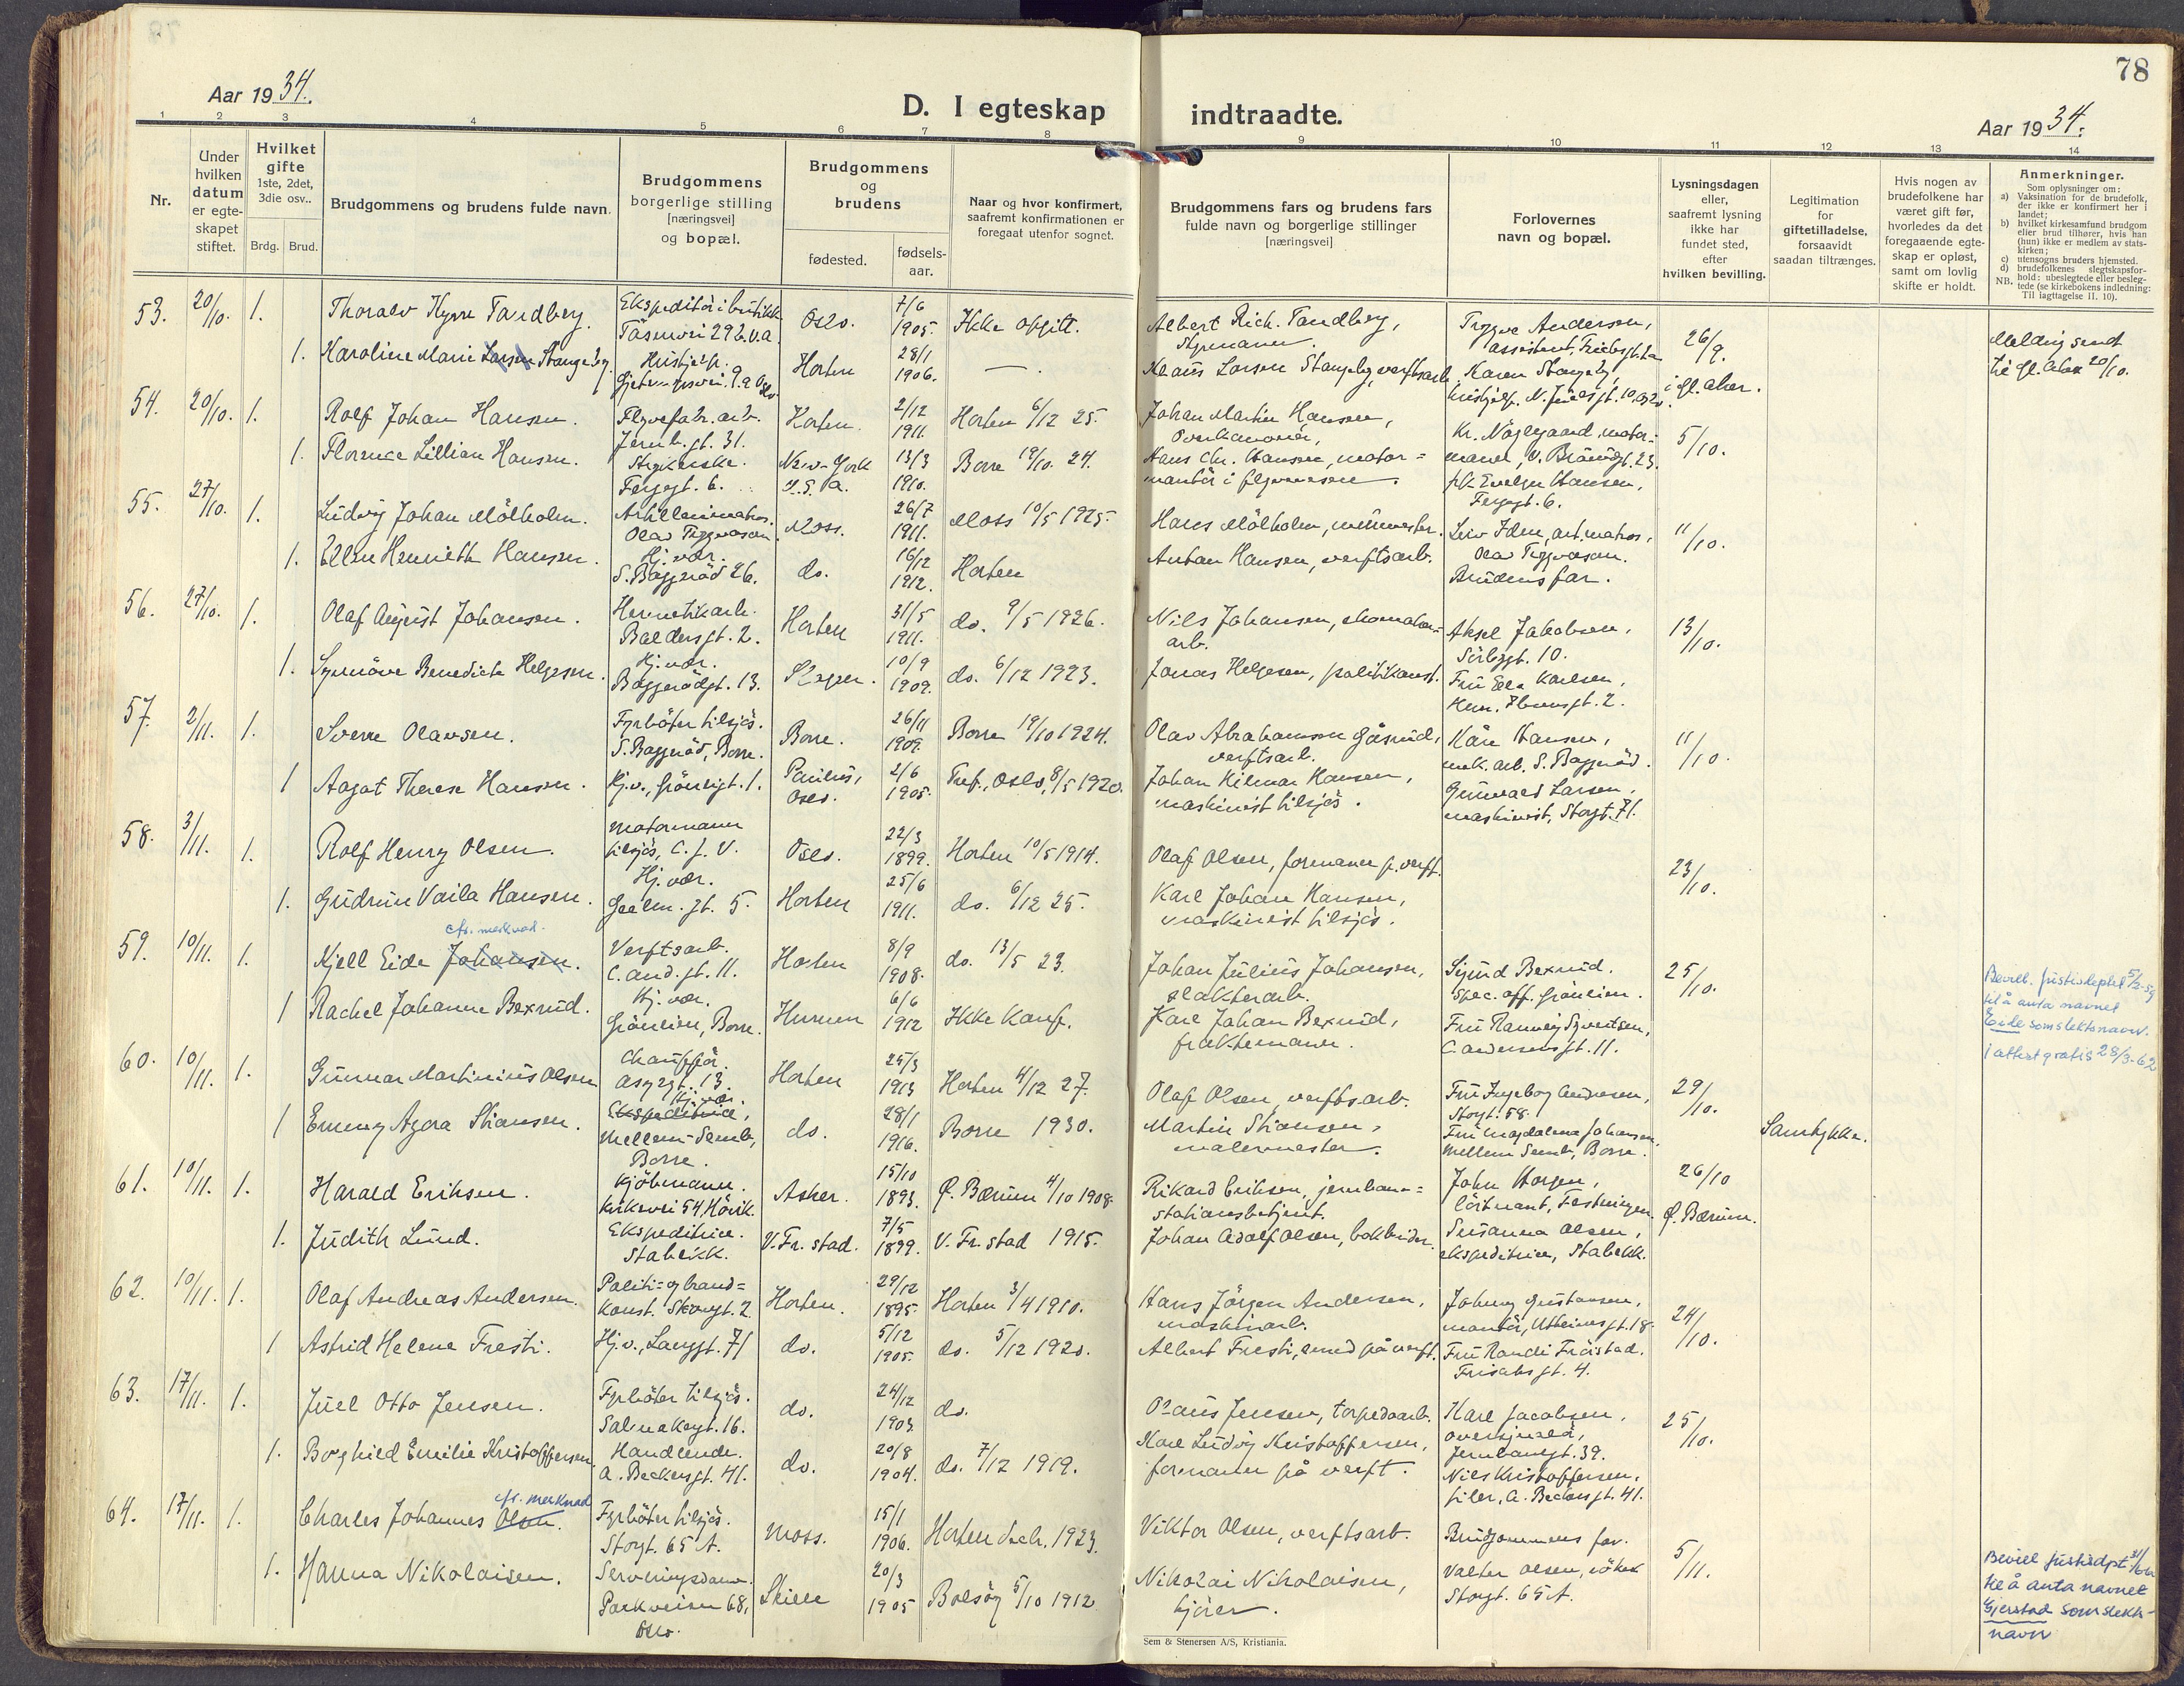 78
Aar 1934.
D. I egteskap indtraadte.
Aar 1934.
1 2 3 4 5 6 7 8 9 10 11 12 13 14
Nr.
Under
hvilken
datum
er egte-
skapet
stiftet.
Hvilket
gifte
1ste, 2det,
3die osv..
Brdg. Brud.
Brudgommens og brudens fulde navn.
Brudgommens
borgerlige stilling
[næringsvei]
og bopæl.
Brudgommens
og
brudens
fødested.
fødsels-
aar.
Naar og hvor konfirmert,
saafremt konfirmationen er
foregaat utenfor sognet.
Brudgommens fars og brudens fars
fulde navn og borgerlige stillinger
[næringsvei]
Forlovernes
navn og bopæl.
Lysningsdagen
eller,
saafremt lysning
ikke har
fundet sted,
efter
hvilken bevilling.
Legitimation
for
giftetilladelse,
forsaavidt
saadan tiltrænges.
Hvis nogen av
brudefolkene har
været gift før,
hvorledes da det
foregaaende egte-
skap er opløst,
samt om lovlig
skifte er holdt.
Anmerkninger.
Som oplysninger om:
a) Vaksination for de brudefolk,
der ikke er konfirmert her i
landet;
b) hvilket kirkesamfund brudgom
eller brud tilhører, hvis han
(hun) ikke er medlem av stats-
kirken;
c) utensogns bruders hjemsted.
d) brudefolkenes slegtskapsfor-
hold: ubeslegtede eller besleg-
tede (se kirkebokens indledning:
NB. Til Iagttagelse II. 10).
53. 20/10. 1. Thoralv Kyrre Tandberg. Ekspeditör i butikk Tåsenvei 29 b. V.A. Oslo. 7/6 1905. Ikke opgitt. Albert Rich. Tandberg, Trygve Andersen, assistent, 26/9.
1. Karoline Marie Larsen Stangeby. Hushjelp. Horten 28/1 1906. — . Klaus Larsen Stangeby, verftsarb. Karen Stangeby, i Gl. Aker. Melding sendt til Gl. Aker 20/10.
54. 20/10. 1. Rolf Johan Hansen. Flyvefabr. arb. Jernb. gt. 31. Horten. 2/12 1911. Horten 6/12 25. Johan Martin Hansen, overkanoner, Kr. Nöglegaard, motor= mann, 5/10.
1. Florence Lillian Hansen. Strykerske. Fergegt. 6. New-York U.S.A. 13/3 1910. Borre 19/10. 24. Hans Chr. Hansen, motor= mantör i flyvevesen. frk Evelyn Hansen, Fergegt. 6.
55. 27/10. 1. Ludvig Johan Mölholm. Artillerimatros. Olav Tryggvason. Moss. 26/7 1911. Moss 10/5 1925. Hans Mölholm, Leiv Iden, art. matros, Olav Tryggvason. 11/10.
1. Ellen Henrieth Hansen. Hj. vær. S. Baggeröd 26. do. 16/12 1912. Horten Anton Hansen, verftsarb. Brudens far.
56. 27/10. 1. Olaf August Johansen. Hermetikarb. Baldersgt. 2. Horten 31/5 1911. do. 9/5 1926. Nils Johansen, arb. Aksel Jakobsen, 13/10.
1. Synnöve Benedicte Helgesen. Hj. vær. Baggerödgt. 13. 10/9 1909. do. 6/12 1923. Jonas Helgesen, politikonst. Fru Ella Karlsen, Henr. Ibsensgt. 2.
57. 2/11. 1. Sverre Olavsen. Fyrböter tilsjös. S. Baggeröd, Borre. Borre. 26/11 1909. Borre 19/10 1924. Olav Abrahamsen Gåsrud, verftsarb. Kåre Hansen, mek. arb. S. Baggeröd. 11/10.
1 Aagot Therese Hansen. Hj. v., Grönligt. 1. Paulus, Oslo. 2/6 1905. Oslo, 8/5 1920. Johan Hilmar Hansen, maskinist tilsjös. Gunvald Larsen, maskinist, Storgt. 71.
58. 3/11. 1. Rolf Henry Olsen. Motormann tilsjös, C. J. V. Oslo. 22/3 1899. Horten 10/5 1914. Olaf Olsen, formann p. verft. 23/10.
1. Gudrun Vaila Hansen. Hj. vær. 5. Horten 25/6 1911. do. 6/12 25. Karl Johan Hansen, maskinist tilsjös.
cfr. merknad.
59. 10/11. 1. Kjell Eide Johansen. Verftsarb. C. And. gt. 11. Horten 8/9 1908. do. 13/5 23. Johan Julius Johansen, slakterarb. Sigurd Bexrud. 25/10. Bevill. Justisdeptet 5/2-59 til å anta navnet Eide som slektsnavn. 1 attest gratis 28/3-62
1 Rachel Johanne Bexrud. Hj. vær. Grönlien, Borre. Hurum 6/6 1912 Ikke konf. Karl Johan Bexrud, fraktemann. Fru Ranveig Syvertsen, C. Andersensgt. 11.
60. 10/11. 1. Gunnar Martinius Olsen Chauffför. Asgygt. 13. Horten 25/3 1913 Horten 4/12 27. Olaf Olsen, verftsarb. Fru Ingeborg Andresen, Storgt. 58. 29/10.
1 Emmy Agora Stiansen. Hj. vær. Ekspeditrice, Mellem-Semb, Borre. do. 28/1 1916. Borre 1930. Martin Stiansen, malermester. Fru Magdalena Johansen, Mellem Semb, Borre. Samtykke.
61. 10/11. 1. Harald Eriksen. Kjöbmann. Kirkevei 54, Hövik. Asker. 15/10 1893. Ö. Bærum 4/10 1908. Rikard Eriksen, jernbane= stationsbetjent. John Horgen, löitnant, Festningen. 26/10 Ö. Bærum.
1. Judith Lund. Ekspeditrice. Stabekk. V. Fr. stad. 7/5 1899. V. Fr. stad 1915. Johan Adolf Olsen, bokbinder. Susanna Olsen, ekspeditrice, Stabekk.
62. 10/11. 1. Olaf Andreas Andersen. Politi= og brand= konst. Skovgt. 2 Horten. 29/12 1895. Horten 3/4 1910. Hans Jörgen Andersen, maskinarb. Johnny Gustavsen, montör, 18. 24/10.
1 Astrid Helene Fresti. Hj. v., Langgt. 71 do. 5/12 1905. do. 5/12 1920. Albert Fresti, smed på verft. Fru Randi Fröistad. 4.
63. 17/11. 1. Juel Otto Jensen. Fyrböter tilsjös. 16. do. 24/12 1903. do. Olaus Jensen, torpedoarb. Karl Jacobsen, Jernbanegt. 39. 25/10.
1. Borghild Emilie Kristoffersen. Handlende. A. Beckersgt. 41. do. 20/8 1904. do. 7/12 1919. Karl Ludvig Kristoffersen, formann på verft. Nils Kristoffersen, filer, A. Beckersgt. 41.
cfr. merknad
64. 17/11. 1. Charles Johannes Olsen. Fyrböter tilsjös. Storgt. 65 A. Moss. 15/1 1906. Horten 1923. Viktor Olsen, verftsarb. Brudgommens far. 5/11. Bevill Justisdpt til å anta navnet Gjerstad som slekts- navn
1. Hanna Nikolaisen. Serveringsdame. Parkveien 68, Oslo. 20/3 1905 Bolsöy 5/10 1912 Nikolai Nikolaisen, kjörer. Valter Olsen, Storgt. 65 A.
Sem & Stenersen A/S, Kristiania.